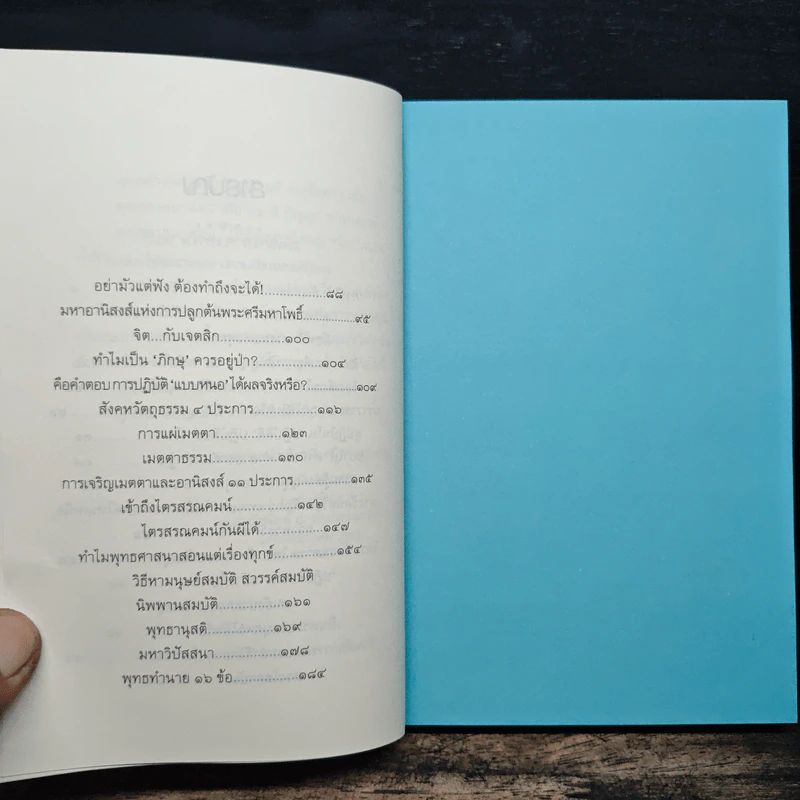 อย่ามัวแต่ฟัง ต้องทำถึงจะได้!................๘๘
มหาอานิสงส์แห่งการปลูกต้นพระศรีมหาโพธิ์..................๙๕
จิต...กับเจตสิก.................๑๐๐
ทำไมเป็น ‘ภิกษุ’ ควรอยู่ป่า?.................๑๐๔
คือคำตอบ การปฏิบัติ ‘แบบหนอ’ ได้ผลจริงหรือ?.................๑๐๙
สังคหวัตถุธรรม ๔ ประการ.................๑๑๖
การแผ่เมตตา.................๑๒๓
เมตตาธรรม.................๑๓๐
การเจริญเมตตาและอานิสงส์ ๑๑ ประการ...............๑๓๕
เข้าถึงไตรสรณคมน์.................๑๔๒
ไตรสรณคมน์กันผีได้.................๑๔๗
ทำไมพุทธศาสนาสอนแต่เรื่องทุกข์.................๑๕๔
วิธีหามนุษย์สมบัติ สวรรค์สมบัติ
นิพพานสมบัติ.................๑๖๑
พุทธานุสติ.................๑๖๙
มหาวิปัสสนา.................๑๗๘
พุทธทำนาย ๑๖ ข้อ.................๑๘๔